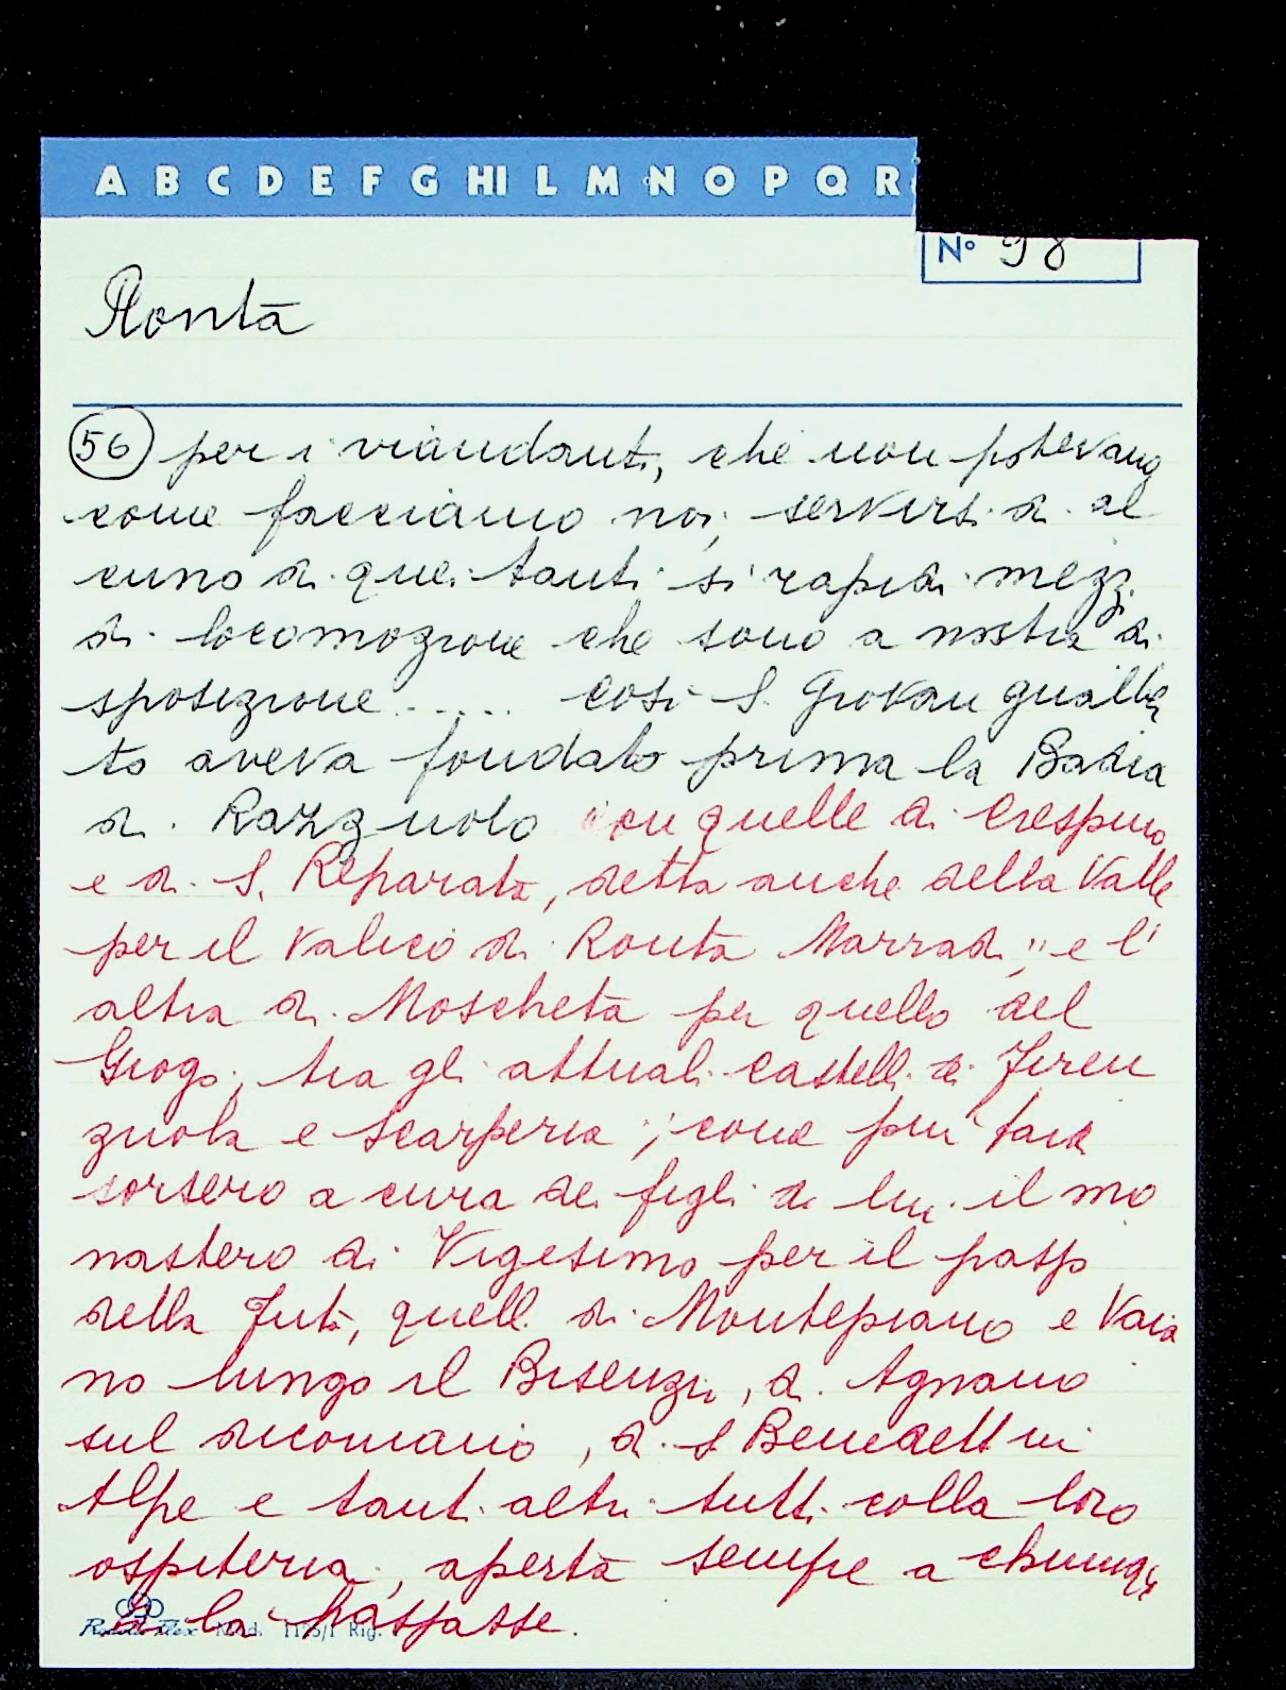 A B C D E F G HI L M N O P Q R
N° 98
Ronta
56 per i viandanti, che non potevano
come facciamo noi, servirsi di al
cuno di quei tanti si rapidi mezzi
di locomozione che sono a nostra di
sposizione ..... così S. Giovan Gualber
to aveva fondato prima la Badia
di Razzuolo con quelle di Crespino
e di S. Reparata, detta anche della Valle
per il valico di Ronta Marradi, e l'
altra di Moscheta per quello del
Giogo, tra gli attuali castelli di Firen
zuola e Scarperia; come più tardi
sorsero a cura dei figli di lui il mo
nastero di Vigesimo per il passo
della Futa, quelli di Montepiano e Vaia
no lungo il Bisenzio, di Agnano
sul dicomano, di S Benedetto in
Alpe e tanti altri tutti colla loro
ospiteria, aperta sempre a chiunque
di la passasse.
Mod. 1175/1 Rig.